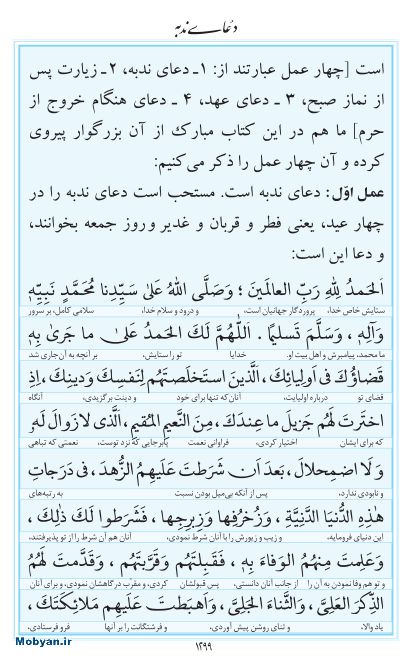 دعاے ندبه
است [چهار عمل عبارتند از: ۱ـ دعای ندبه، ۲ـ زیارت پس
از نماز صبح، ۳ ـ دعای عهد، ۴ ـ دعای هنگام خروج از
حرم] ما هم در این کتاب مبارک از آن بزرگوار پیروی
کرده و آن چهار عمل را ذکر می‌کنیم:
عمل اوّل: دعای ندبه است. مستحب است دعای ندبه را در
چهار عید، یعنی فطر و قربان و غدیر و روز جمعه بخوانند،
و دعا این است:
اَلحَمدُ لِلّٰهِ رَبِّ العالَمینَ ؛ وَصَلَّی اللهُ عَلیٰ سَیِّدِنا مُحَمَّدٍ نَبِیِّهٖ
ستایش خاص خدا، پروردگار جهانیان است، و درود و سلام خدا، سلامی کامل، بر سرور
وَآلِهٖ ، وَسَلَّمَ تَسلیمًا . اَللّٰهُمَّ لَكَ الحَمدُ عَلیٰ ما جَریٰ بِهٖ
ما محمد، پیامبرش و اهل بیت او. خدایا تو را ستایش، بر آنچه به آن جاری شد
قَضاؤُكَ فی اَولِیائِكَ ، اَلَّذینَ استَخلَصتَهُم لِنَفسِكَ وَدینِكَ، اِذِ
قضای تو درباره اولیایت، آنان که تنها برای خود و دینت برگزیدی، آنگاه
اختَرتَ لَهُم جَزیلَ ما عِندَكَ ، مِنَ النَّعیمِ المُقیمِ ، اَلَّذی لا زَوالَ لَهٗ
که برای ایشان اختیار کردی، فراوانی نعمت پابرجایی که نزد توست، نعمتی که تباهی
وَ لَا اضمِحلالَ ، بَعدَ اَن شَرَطتَ عَلَیهِمُ الزُّهدَ ، فی دَرَجاتِ
و نابودی ندارد، پس از آنکه بی‌میل بودن نسبت به رتبه‌های
هٰذِهِ الدُّنیَا الدَّنِیَّةِ ، وَزُخرُفِها وَزِبرِجِها ، فَشَرَطوا لَكَ ذٰلِكَ ،
این دنیای فرومایه، و زیب و زیورش را با آنان شرط نمودی، آنان هم آن شرط را از تو پذیرفتند،
وَعَلِمتَ مِنهُمُ الوَفاءَ بِهٖ ، فَقَبِلتَهُم وَقَرَّبتَهُم ، وَقَدَّمتَ لَهُمُ
و تو هم وفا نمودن به آن را از جانب آنان دانستی، پس قبولشان کردی، و مقرّب درگاهشان نمودی، و برای آنان
الذِّكرَ العَلِیَّ ، وَالثَّناءَ الجَلِیَّ ، وَاَهبَطتَ عَلَیهِم مَلائِكَتَكَ ،
یاد والا، و ثنای روشن پیش آوردی، و فرشتگانت را بر آنها فرو فرستادی،
۱۲۹۹
Mobyan.ir